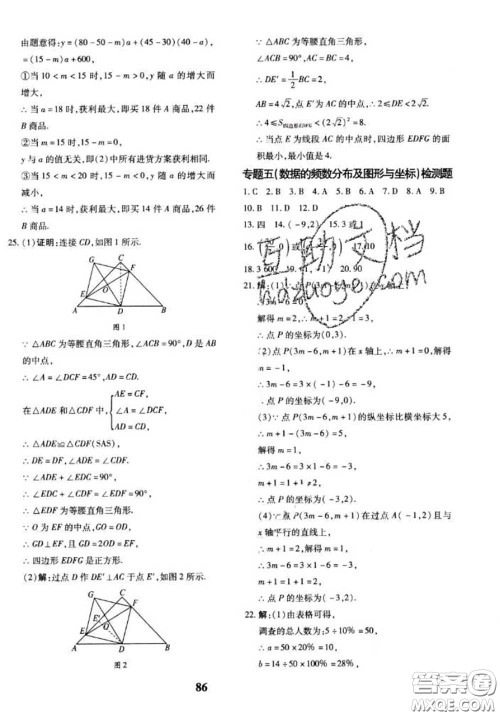 由题意得:y=(80-50-m)a+(45-30)(40-a),
=(15-m)a+600,
①当10<m<15时,15-m>0,y随a的增大
而增大,
∴当a=18时,获利最大,即买18件A商品,22件
B商品.
y与a的值无关,即(2)中所有进货方案获利相同.
③当15<m<20时,15-m<0,y随a的增大而
减小,
∴当a=14时,获利最大,即买14件A商品,26件
B商品.
25.(1)证明:连接CD,如图1所示.
G C F E O A D B
图1
∵△ABC为等腰直角三角形,∠ACB=90°,D是AB
的中点,
∴∠A=∠DCF=45°,AD=CD.
在△ADE和△CDF中,{AE=CF, ∠A=∠DCF, AD=CD,
∴△ADE≌△CDF(SAS),
∴DE=DF,∠ADE=∠CDF.
∵∠ADE+∠EDC=90°,
∴∠EDC+∠CDF=∠EDF=90°,
∴△EDF为等腰直角三角形.
∵O为EF的中点,GO=OD,
∴GD⊥EF,且GD=2OD=EF,
∴四边形EDFG是正方形.
(2)解:过点D作DE′⊥AC于点E′,如图2所示.
G C F E′ O E A D B
图2
∵△ABC为等腰直角三角形,
∠ACB=90°,AC=BC=4,
∴DE′=1/2BC=2,
AB=4√2,点E′为AC的中点,
∴4≤S四边形EDFG<(2√2)²=8
∴当点E为线段AC的中点时,四边形EDFG的面
积最小,最小值是4.
专题五(数据的频数分布及图形与坐标)检测题
1.C 2.B 3.D 4.A 5.A 6.D 7.A 8.A 9.B
10.B 11.D 12.D
13.四 14.(-9,2) 15.3或1
17.10
18.3 600 20.90
解得m=2,∴m+1=3,
∴点P的坐标为(0,3).
(2)∵点P(3m-6,m+1)在x轴上,∴m+1=0,
解得m=-1,
∴3m-6=3×(-1)-6=-9,
∴点P的坐标为(-9,0).
(3)∵点P(3m-6,m+1)的纵坐标比横坐标大5,
∴m+1-(3m-6)=5,
解得m=1,
∴3m-6=3×1-6=-3,
m+1=1+1=2,
∴点P的坐标为(-3,2).
(4)∵点P(3m-6,m+1)在过点A(-1,2)且与
x轴平行的直线上,
∴m+1=2,解得m=1,
∴3m-6=3×1-6=-3,
m+1=1+1=2,
∴点P的坐标为(-3,2).
22.解:(1)由表格可得,
调查的总人数为:5÷10%=50,
∴a=50×20%=10,
b=14÷50×100%=28%,
86